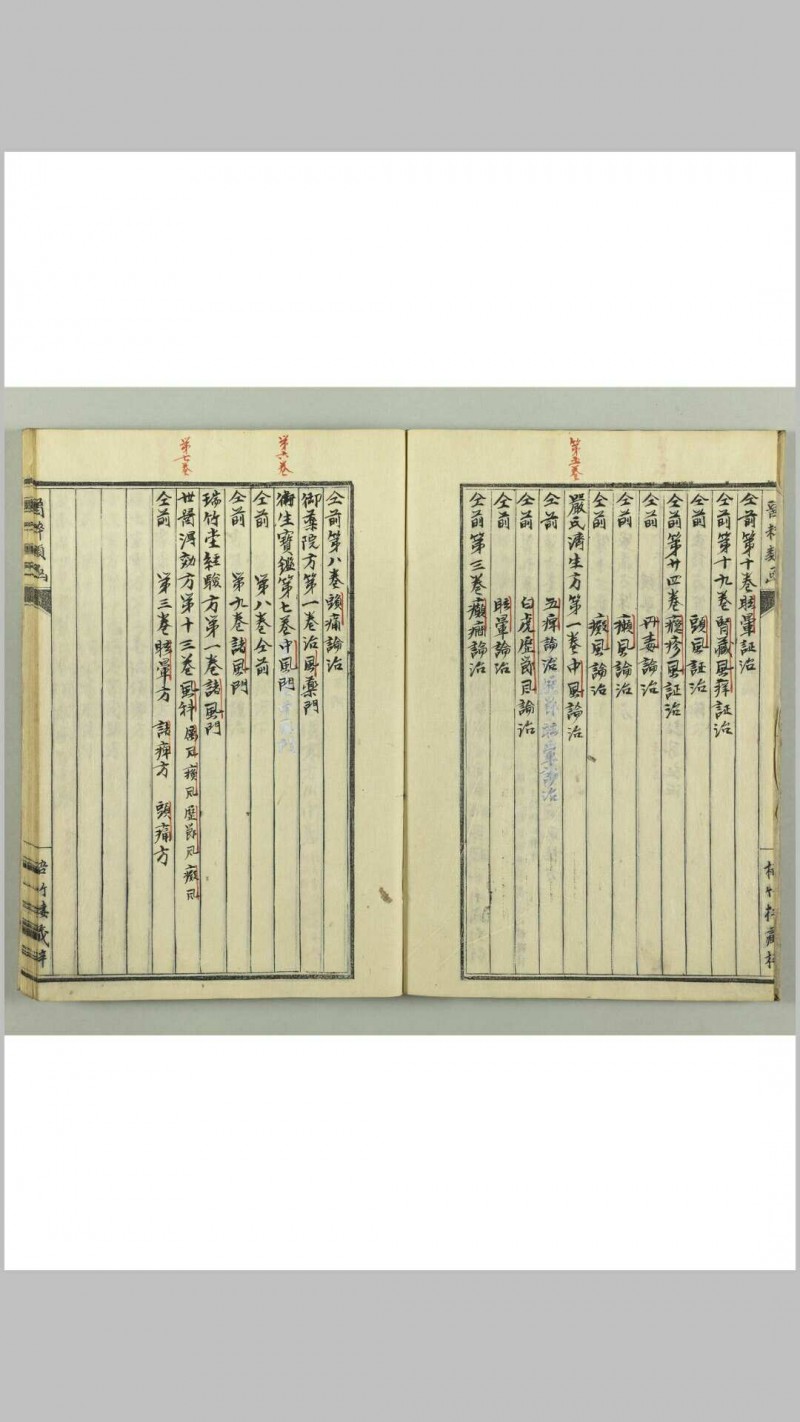 仝前第十卷眩暈証治
仝前第十九卷腎臟風痒証治
仝前 頭風証治
仝前第廿四卷癮疹風証治
仝前 丹毒論治
仝前 癩風論治
仝前 癜風論治
嚴氏濟生方第一卷中風論治
第五卷
仝前 五痺論治
仝前 白虎歷節風論治
仝前 眩暈論治
仝前第三卷癲癇論治
仝前第八卷頭痛論治
御藥院方第一卷治風藥門
衛生寶鑑第七卷中風門
第六卷
仝前 第八卷仝前
仝前 第九卷諸風門
瑞竹堂經驗方第一卷諸風門
世醫得効方第十三卷風科 癘風 癱風 歷節風 癜風
第七卷
仝前 第三卷眩暈方 諸痺方 頭痛方